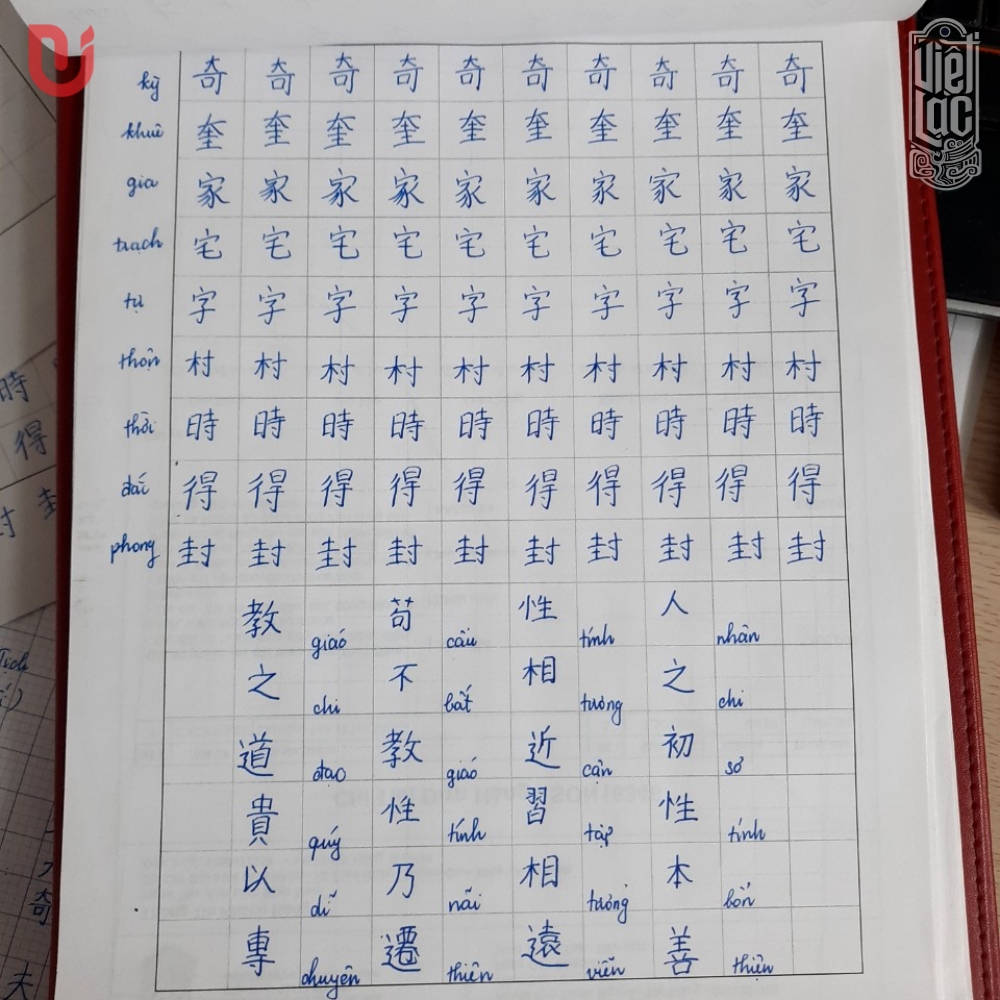 Việt Lạc
kỳ 奇 奇 奇 奇 奇 奇 奇 奇 奇 奇
khuê 奎 奎 奎 奎 奎 奎 奎 奎 奎 奎
gia 家 家 家 家 家 家 家 家 家 家
trạch 宅 宅 宅 宅 宅 宅 宅 宅 宅 宅
tự 字 字 字 字 字 字 字 字 字 字
thôn 村 村 村 村 村 村 村 村 村 村
thời 時 時 時 時 時 時 時 時 時 時
đắc 得 得 得 得 得 得 得 得 得 得
phong 封 封 封 封 封 封 封 封 封 封
教 giáo 苟 cẩu 性 tính 人 nhân
之 chi 不 bất 相 tương 之 chi
道 đạo 教 giáo 近 cận 初 sơ
貴 quý 性 tính 習 tập 性 tính
以 dĩ 乃 nãi 相 tương 本 bổn
專 chuyên 遷 thiên 遠 viễn 善 thiện
時
得
封
奇
夫